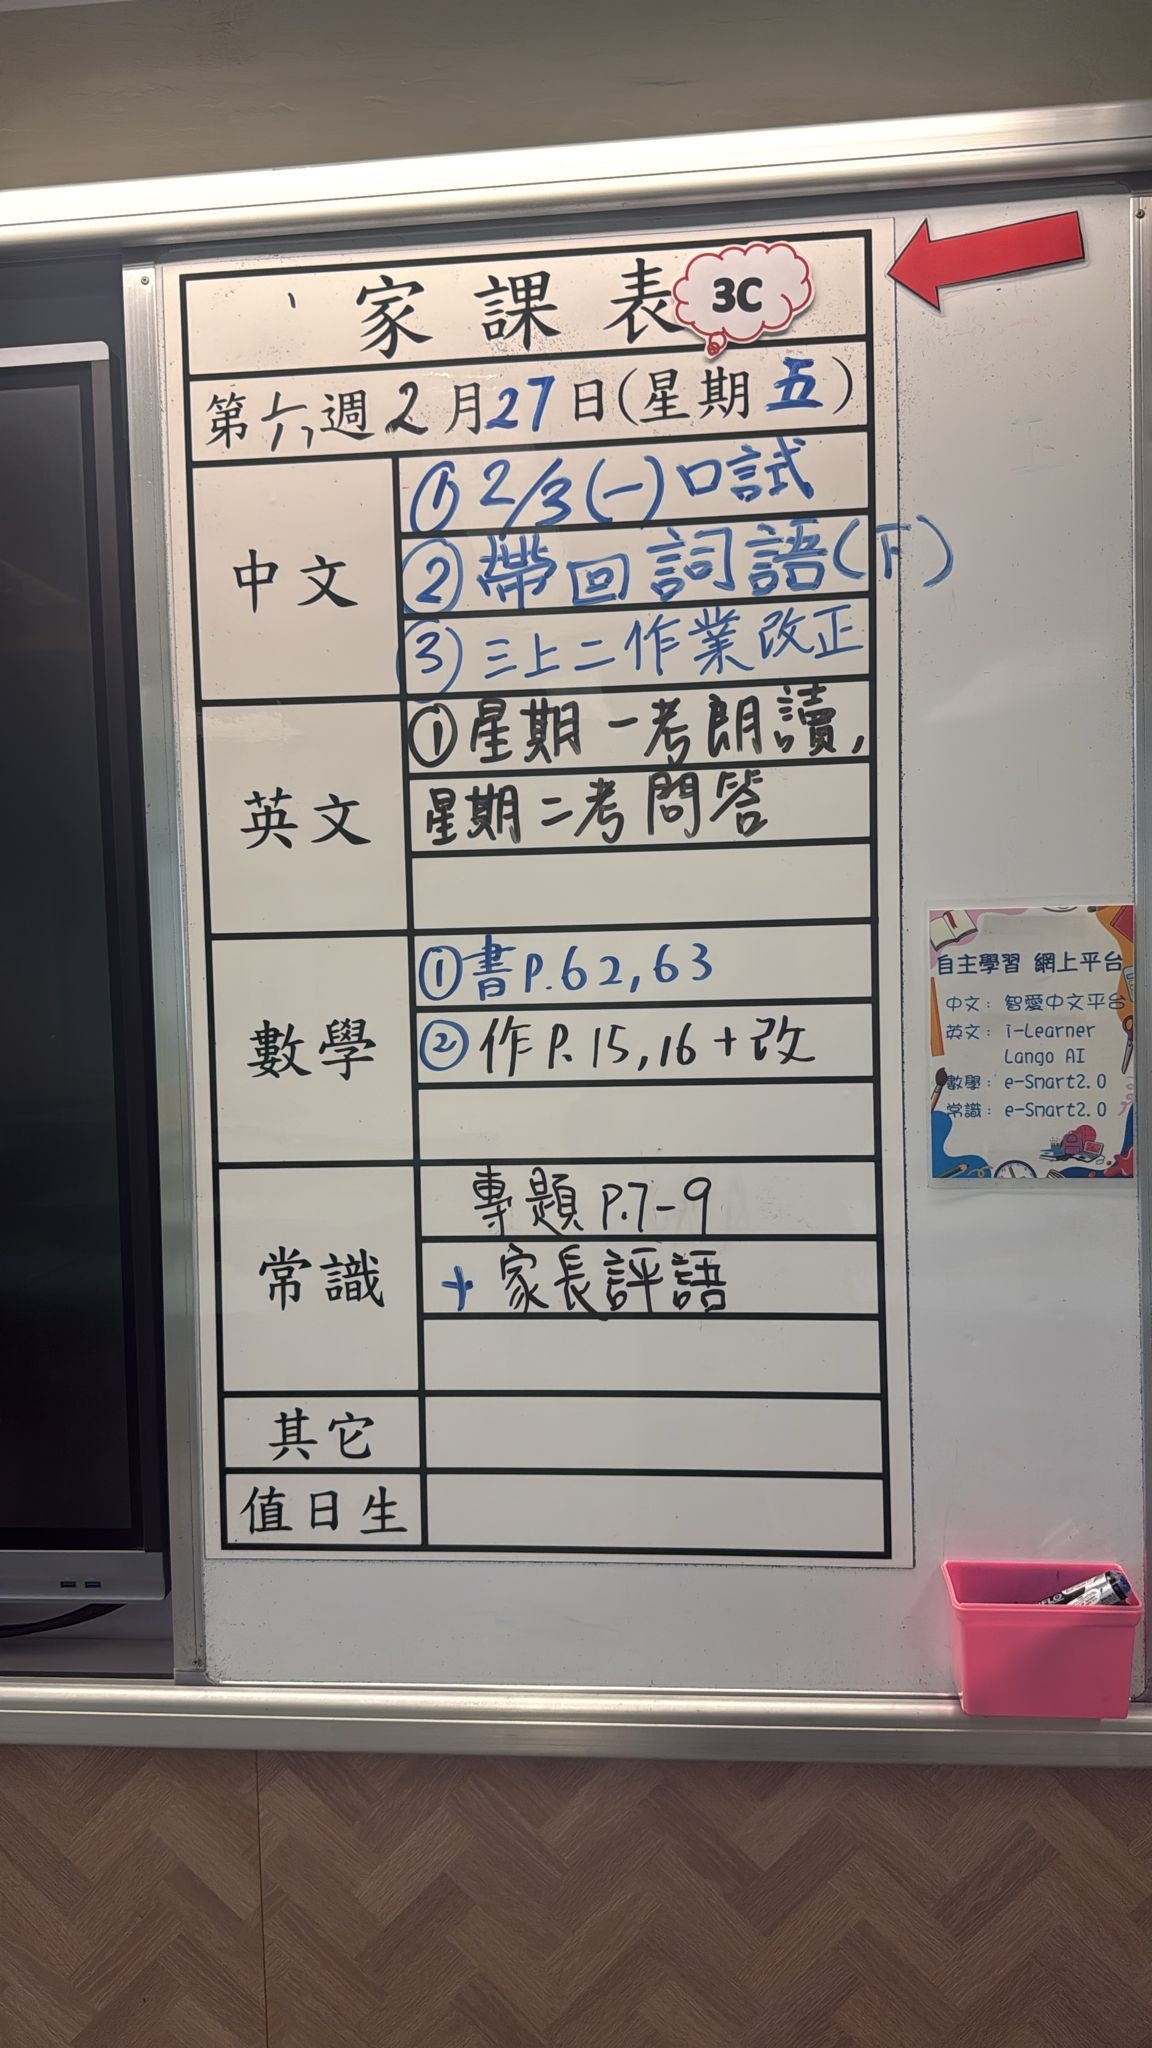 家課表 3C
第六週2月27日(星期五)
中文
① 2/3(一)口試
② 帶回詞語(下)
③ 三上二作業改正
英文
① 星期一考朗讀,
星期二考問答
數學
① 書P.62,63
② 作P.15,16+改
常識
專題P.7-9
+家長評語
其它
值日生
自主學習 網上平台
中文: 智愛中文平台
英文: i-Learner
Lango AI
數學: e-Smart2.0
常識: e-Smart2.0